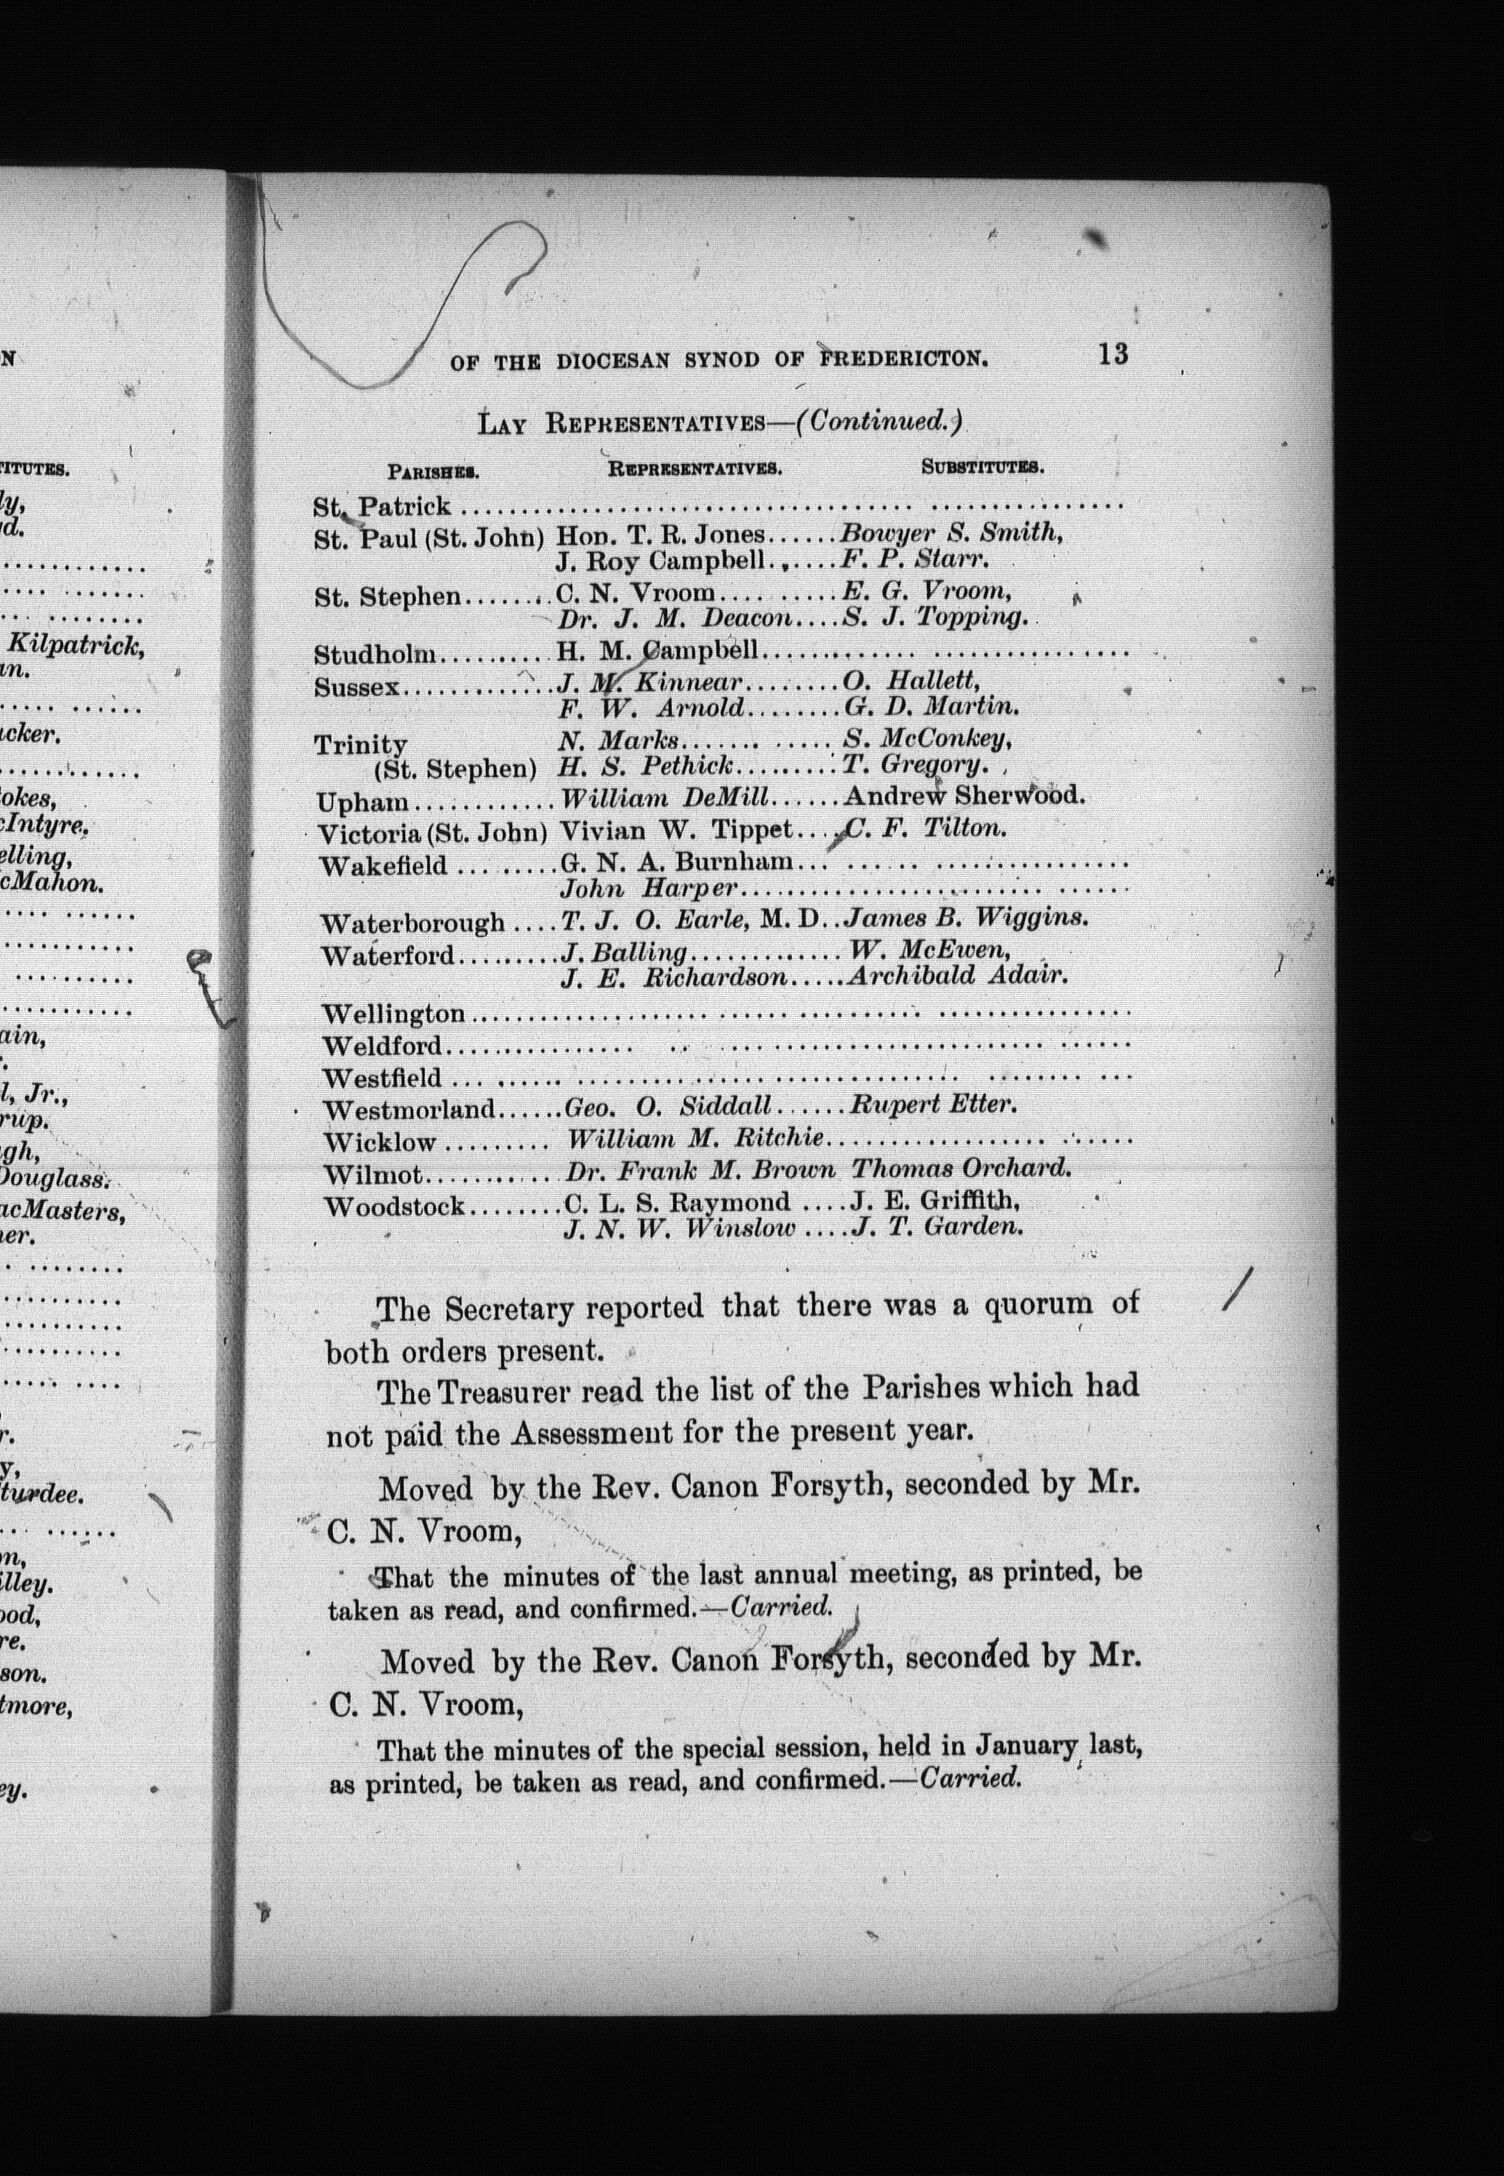 OF THE DIOCESAN SYNOD OF FREDERICTON. 13
LAY REPRESENTATIVES—(Continued.)
PARISHES. REPRESENTATIVES. SUBSTITUTES.
St. Patrick
St. Paul (St. John) Hon. T. R. Jones......Bowyer S. Smith,
J. Roy Campbell......F. P. Starr.
St. Stephen........C. N. Vroom..........E. G. Vroom,
Dr. J. M. Deacon....S. J. Topping.
Studholm..........H. M. Campbell..............................
Sussex.............J. M. Kinnear........O. Hallett,
F. W. Arnold........G. D. Martin.
Trinity N. Marks............ S. McConkey,
(St. Stephen) H. S. Pethick.........T. Gregory.
Upham............William DeMill......Andrew Sherwood.
Victoria (St. John) Vivian W. Tippet....C. F. Tilton.
Wakefield .........G. N. A. Burnham... ...... ................
John Harper.......................... ......
Waterborough ....T. J. O. Earle, M. D..James B. Wiggins.
Waterford.........J. Balling............. W. McEwen,
J. E. Richardson.....Archibald Adair.
Wellington
Weldford
Westfield
Westmorland......Geo. O. Siddall......Rupert Etter.
Wicklow ......... William M. Ritchie................... ......
Wilmot........... Dr. Frank M. Brown Thomas Orchard.
Woodstock........C. L. S. Raymond ....J. E. Griffith,
J. N. W. Winslow ....J. T. Garden.
The Secretary reported that there was a quorum of
both orders present.
The Treasurer read the list of the Parishes which had
not paid the Assessment for the present year.
Moved by the Rev. Canon Forsyth, seconded by Mr.
C. N. Vroom,
That the minutes of the last annual meeting, as printed, be
taken as read, and confirmed.—Carried.
Moved by the Rev. Canon Forsyth, seconded by Mr.
C. N. Vroom,
That the minutes of the special session, held in January last,
as printed, be taken as read, and confirmed.—Carried.